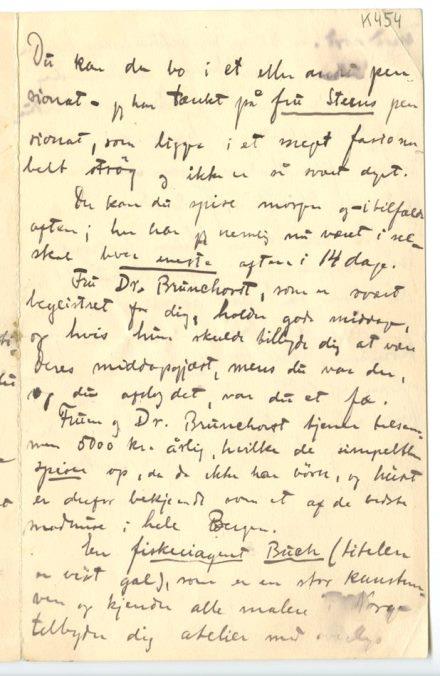 K454
Du kan da bo i et eller andet pen
sionat – jeg har tænkt på frú Steens pen
sionat, som ligge i et meget fasiona
belt strøg og ikke er så svært dyrt.
Der kan dú spise morgen og – i tilfælde
aften; her har jeg nemlig nú været i sel-
skab hver eneste aften i 14 dage.
Frú Dr. Brúnchorst, som er svært
begeistret for dig, holder gode middage,
og hvis hún skulde tillbyde dig at være
deres middagsgjæst, mens dú var der,
og dú afslog det, var dú et fæ.
Fruen og Dr. Brúnchorst tjener tilsam-
men 5000 kr. årlig, hvilke de simpelthen
spiser op, da de ikke har børn, og húset
er derfor bekjendt som et af de bedste
madhúse i hele Bergen.
En fiskeriagent Búch (titelen
er vist gal), som er en stor kunsten-
ven og kjender alle malere i Norge
tilbyder dig atelier med